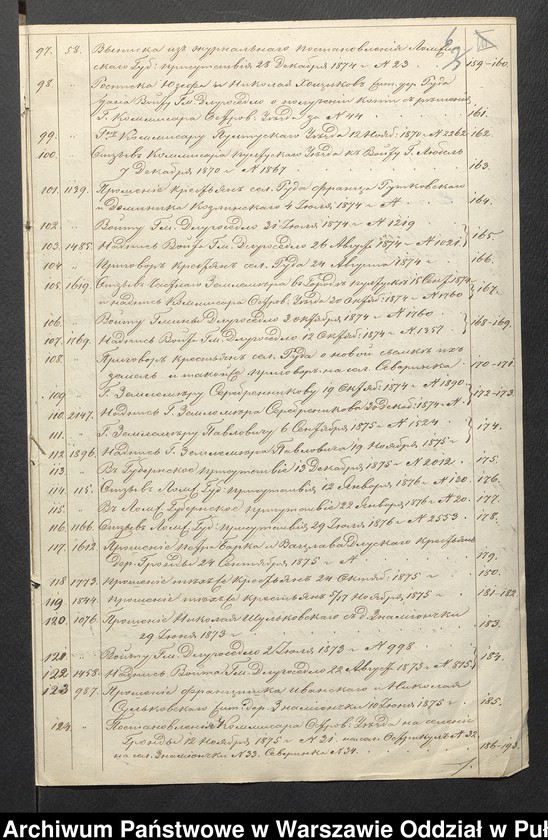 97. 58. Выписка изъ журнальнаго постановленія Ломж-
скаго Губ: присутствія 28 Декабря 1874 г. N 23 159-160.
98. " Росписка Юзефа и Николая жит. дер. Руда
Войту Гм. Длугоседло о полученіи копіи съ рѣшенія
Г. Комиссара Остров. Уѣзда за N 44 161.
99. " Г-ну Коммисару Пултускаго Уѣзда 12 Нояб: 1870 г. N 2262 162.
100. " Отзывъ Комисара Пултускаго Уѣзда къ Войту Г.
7 Декабря 1870 г. N 1867 163.
101. 1139. Прошеніе крестьянъ сел. Руда Франца
и Доминика Козлинскаго 4 Іюля 1874 г. N 164.
102. " Войту Гм. Длугоседло 31 Іюля 1874 г. N 1219
103. 1485. Надпись Войта Гм. Длугоседло 26 Август. 1874 г. N 1021 165.
104 " Приговоръ крестьянъ сел. Руда 24 Августа 1874 г. 166.
105. 1619. Отзывъ Землемера въ Городѣ Пултускѣ 15 Сент. 1874 г.
и надпись Коммисара Остров. Уѣзда 20 Октяб: 1874 г. N 1760 167.
106. " Войту Гмины Длугоседло 2 октября 1874 г. N 1760.
107. 1769. Надпись Войта Гм. Длугоседло 12 Октяб: 1874 г. N 1357 168-169.
108. " Приговоръ крестьянъ сел. Руда о новой ихъ
земель и такой приговоръ на сел. Северинка 170-171
109. " Г. Землемѣру Серебренникову 19 Октяб: 1874 г. N 1890.
110. 2147. Надпись Г. Землемѣра Серебренникова Декаб: 1874 г. N. 172-173.
111. " Г. Землемѣру Павловичу 6 Сентября 1875 г. N 1524
112 1896. Надпись Г. Землемѣра Павловича 19 Ноября 1875 г. 174.
113 " Въ Губернское присутствіе 13 Декабря 1875 г. N 2012. 175.
114. 115. Отзывъ Ломж. Губ: присутствія 12 Января 1876 г. N 120. 176.
115. " Въ Ломж. Губернское присутствіе 22 Января 1876 г. N 20. 177.
116. 1166. Отзывъ Ломж. Губ: присутствія 29 Іюля 1876 г. N 2553. 178.
117. 1612. Прошеніе и Вацлава Длускаго крестьянъ
дер. Гронды 24 Сентября 1875 г. 179.
118 1773. прошеніе тѣхъ же крестьянъ 24 Октяб: 1875 г. 180.
119 1844. прошеніе тѣхъ же крестьянъ 5/17 Ноября 1875 г. 181-182
120. 1076. Прошеніе Николая Шульковскаго д. Знаміончки
29 Іюня 1873 г. 183.
121. " Войту Гм. Длугоседло 2 Іюля 1873 г. N 998
122 1458. Надпись Войта Гм. Длугоседло 22 Август 1873 г. N 815 184.
123 987. Прошеніе Францишка и Николая
Сульковскаго жит. дер. Знаміонски 10 Іюня 1875 г. 185.
124. " Постановленія Коммисара Остров. Уѣзда на селеніе
Гронды 12 Ноября 1875 г. N 31. на сел. N 32
на сел. Знаміончки N 33. Северинка N 34. 186-193.
Archiwum Państwowe w Warszawie Oddział w Puł